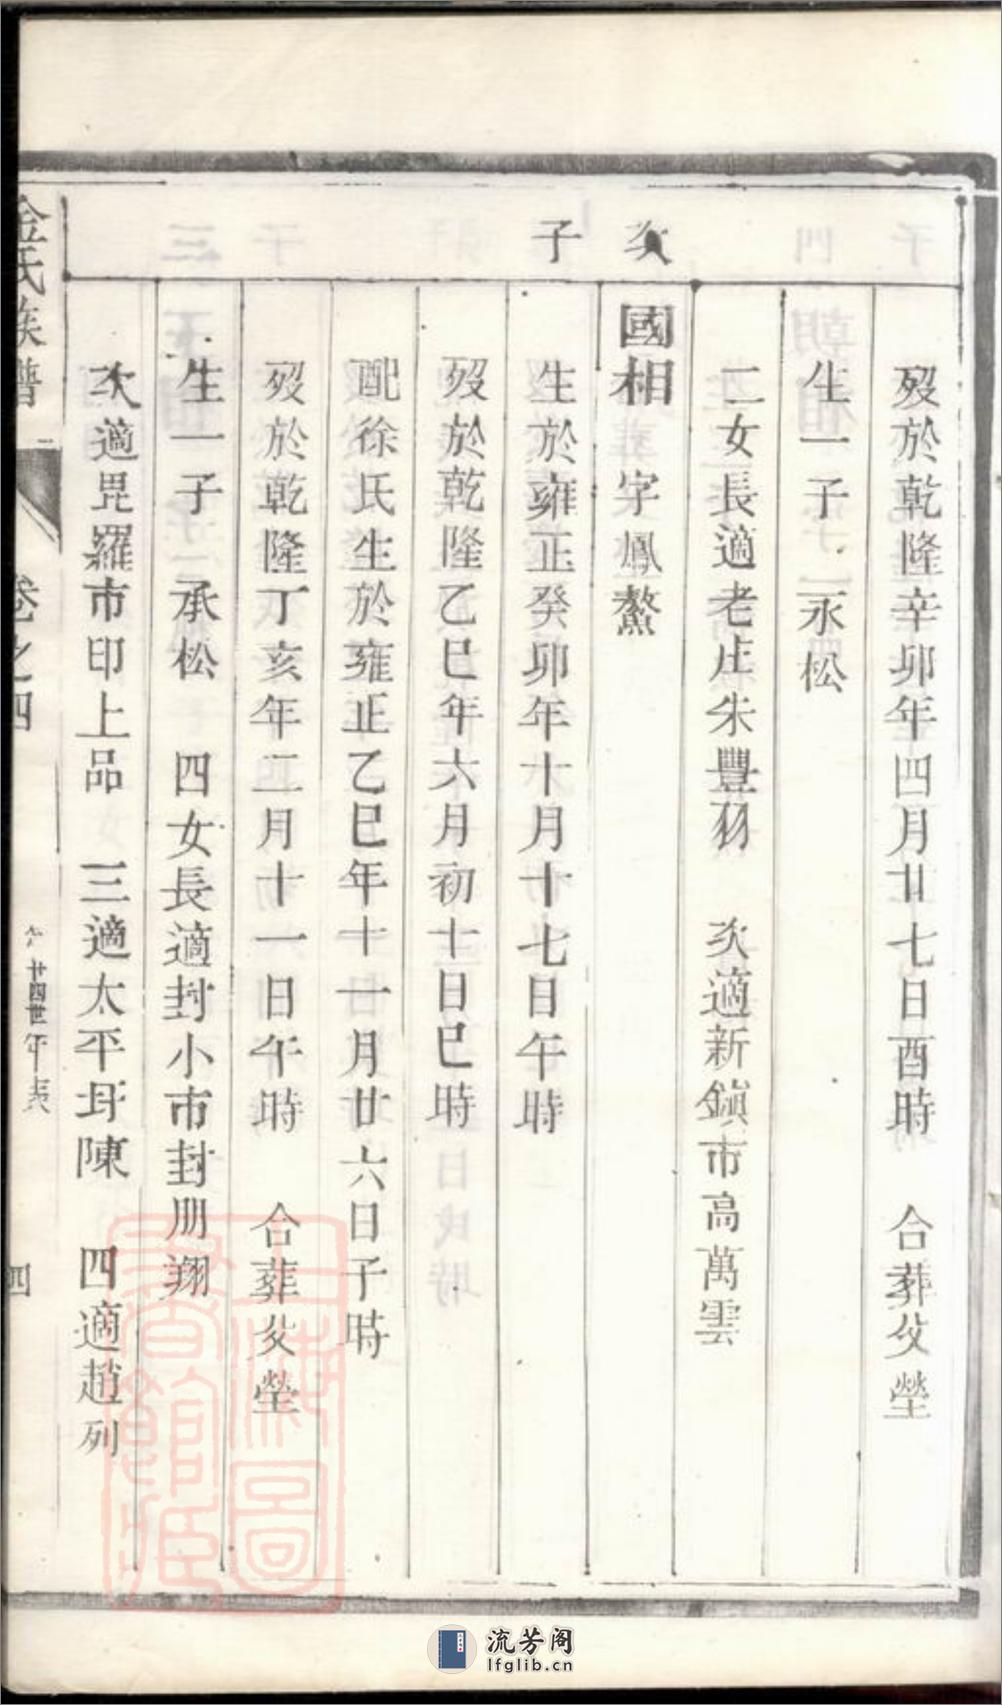 次子
歿於乾隆辛卯年四月廿七日酉時　合葬父塋
生一子　永松
二女長適老庄朱豐羽　次適新鎮市高萬雲
國相　字鳳鰲
生於雍正癸卯年十月十七日午時
歿於乾隆乙巳年六月初十日巳時
配徐氏生於雍正乙巳年十一月廿六日子時
歿於乾隆丁亥年二月十一日午時　合葬父塋
生一子　承松　四女長適封小市封朋翔
次適毘羅市印上品　三適太平圩陳　四適趙列
金氏族譜
卷之四
廿四世年表
四
上海圖書館藏
流芳阁
lfglib.cn